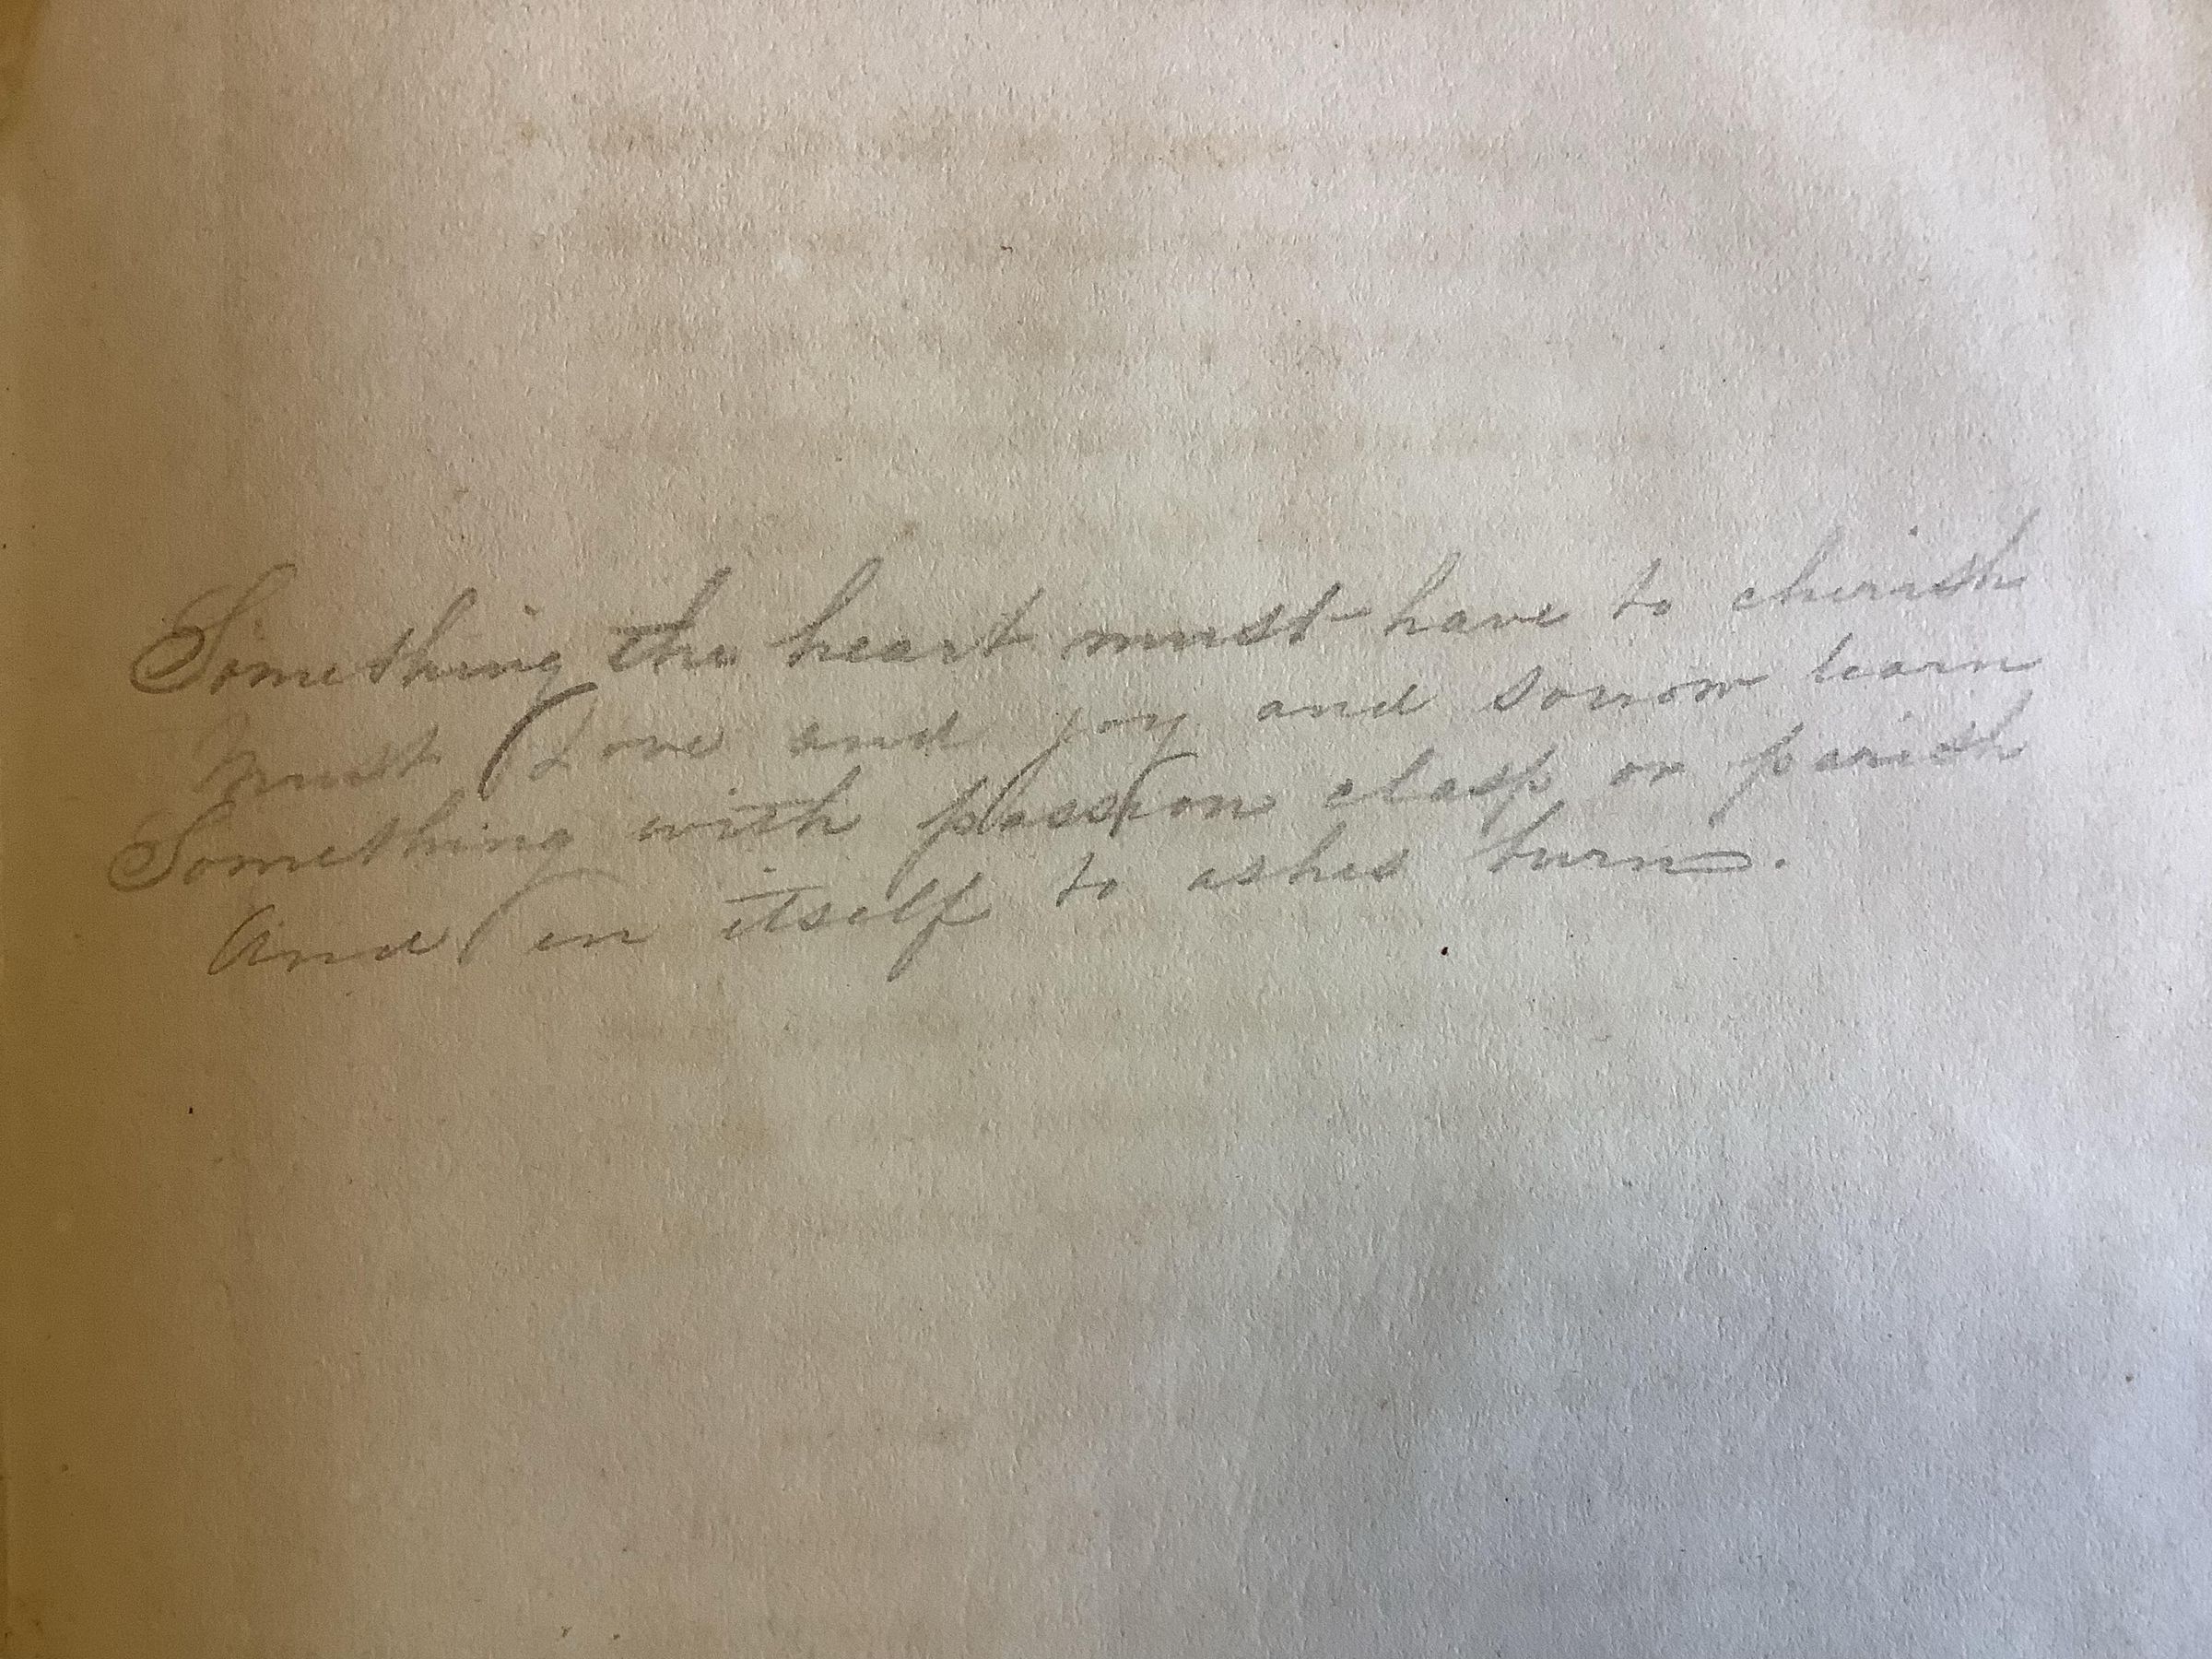 Something the heart must have to cherish
Must Love and joy and sorrow learn
Something with passion clasp or parish
And in itself to ashes burn.